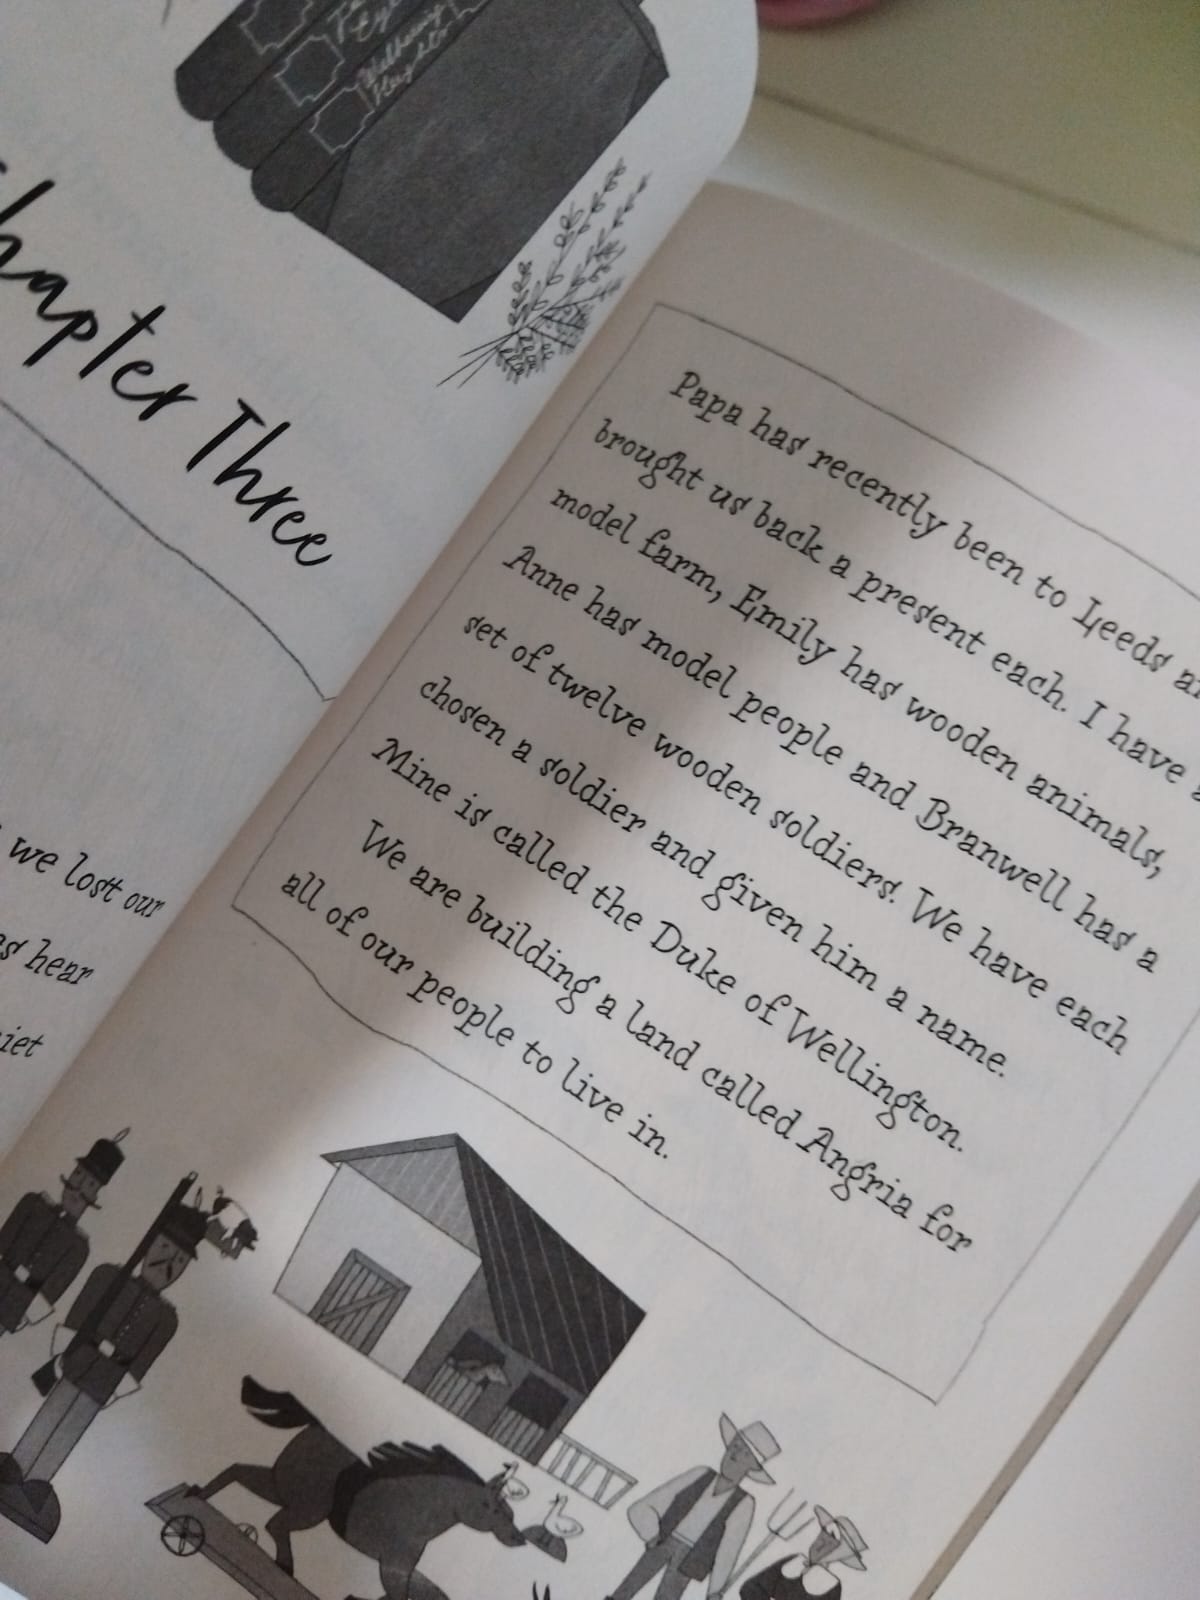 Wuthering
Heights
Chapter Three
we lost our
hear
Papa has recently been to Leeds
brought us back a present each. I have a
model farm, Emily has wooden animals,
Anne has model people and Branwell has a
set of twelve wooden soldiers. We have each
chosen a soldier and given him a name.
Mine is called the Duke of Wellington.
We are building a land called Angria for
all of our people to live in.